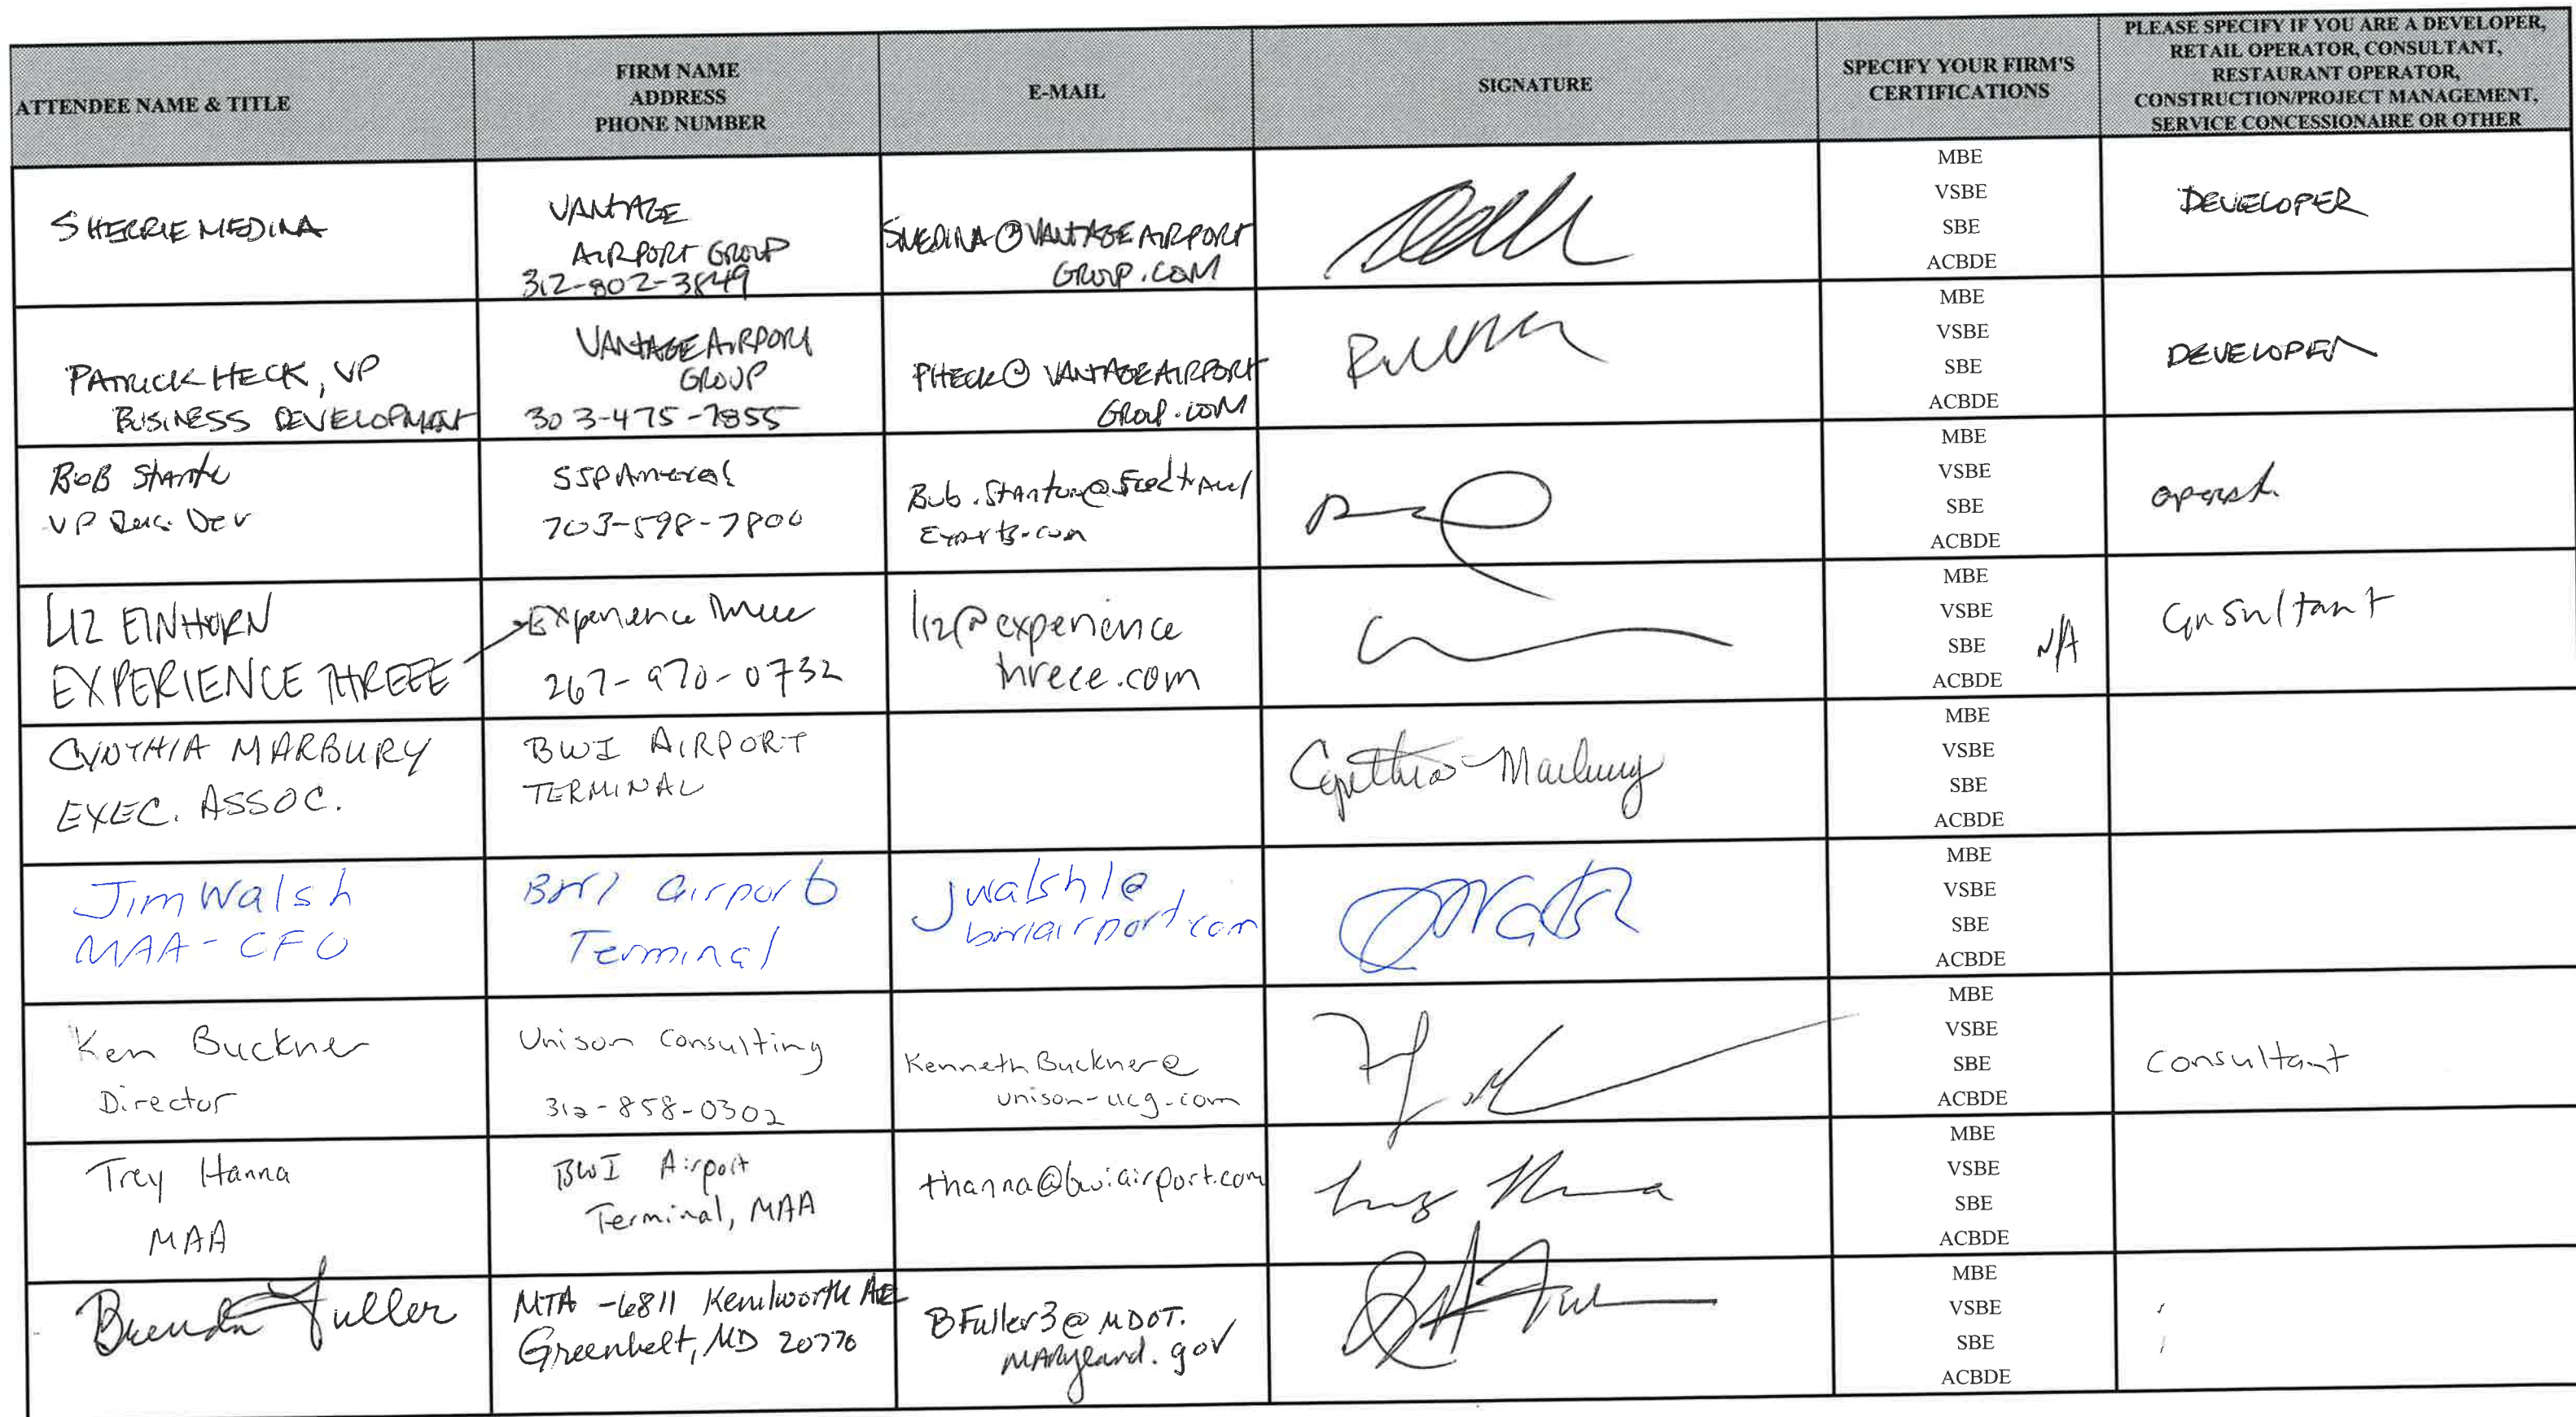 ATTENDEE NAME & TITLE
FIRM NAME
ADDRESS
PHONE NUMBER
E-MAIL
SIGNATURE
SPECIFY YOUR FIRM'S
CERTIFICATIONS
PLEASE SPECIFY IF YOU ARE A DEVELOPER,
RETAIL OPERATOR, CONSULTANT,
RESTAURANT OPERATOR,
CONSTRUCTION/PROJECT MANAGEMENT,
SERVICE CONCESSIONAIRE OR OTHER
SHERRIE MEDINA
VANTAGE
AIRPORT GROUP
312-802-3849
SMEDINA@VANTAGEAIRPORT
GROUP.COM
MBE
VSBE
SBE
ACBDE
DEVELOPER
PATRICK HECK, VP
BUSINESS DEVELOPMENT
VANTAGE AIRPORT
GROUP
303-475-7855
PHECK@VANTAGEAIRPORT
GROUP.COM
MBE
VSBE
SBE
ACBDE
DEVELOPER
BOB
VP Dev
SSP America
703-598-7800
Bob.Stanton@foodtravel
Experts.com
MBE
VSBE
SBE
ACBDE
LIZ EINHORN
EXPERIENCE THREEE
Experience Three
267-970-0732
liz@experience
threee.com
MBE
VSBE
SBE N/A
ACBDE
Consultant
CYNTHIA MARBURY
EXEC. ASSOC.
BWI AIRPORT
TERMINAL
Cynthia Marbury
MBE
VSBE
SBE
ACBDE
Jim Walsh
MAA-CFO
BWI Airport
Terminal
jwalsh1@
bwiairport.com
MBE
VSBE
SBE
ACBDE
Ken Buckner
Director
Unison Consulting
312-858-0302
KennethBuckner@
unison-ucg.com
MBE
VSBE
SBE
ACBDE
Consultant
Trey Hanna
MAA
BWI Airport
Terminal, MAA
thanna@bwiairport.com
MBE
VSBE
SBE
ACBDE
Brenda Fuller
MTA -6811 Kenilworth Ave
Greenbelt, MD 20770
BFuller3@MDOT.
MARyland.gov
MBE
VSBE
SBE
ACBDE